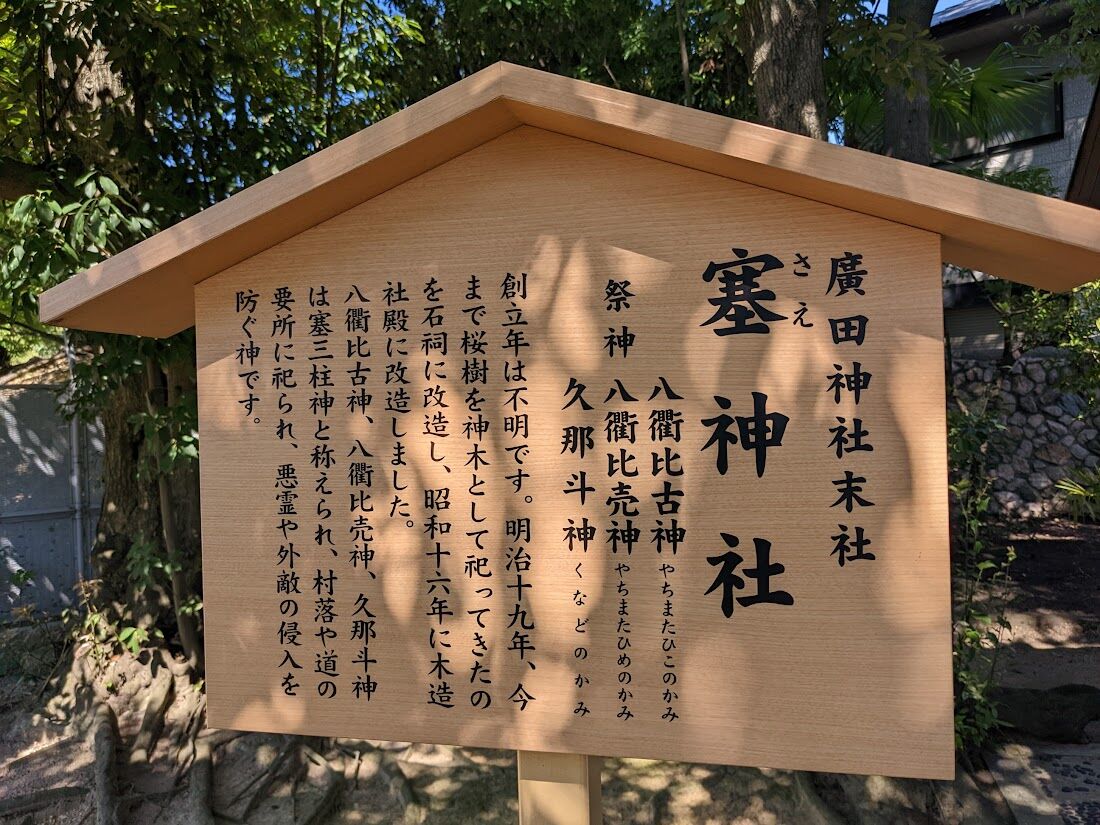 廣田神社末社
さえ
塞神社
祭神
八衢比古神 やちまたひこのかみ
八衢比売神 やちまたひめのかみ
久那斗神 くなどのかみ
創立年は不明です。明治十九年、今
まで桜樹を神木として祀ってきたの
を石祠に改造し、昭和十六年に木造
社殿に改造しました。
八衢比古神、八衢比売神、久那斗神
は塞三柱神と称えられ、村落や道の
要所に祀られ、悪霊や外敵の侵入を
防ぐ神です。